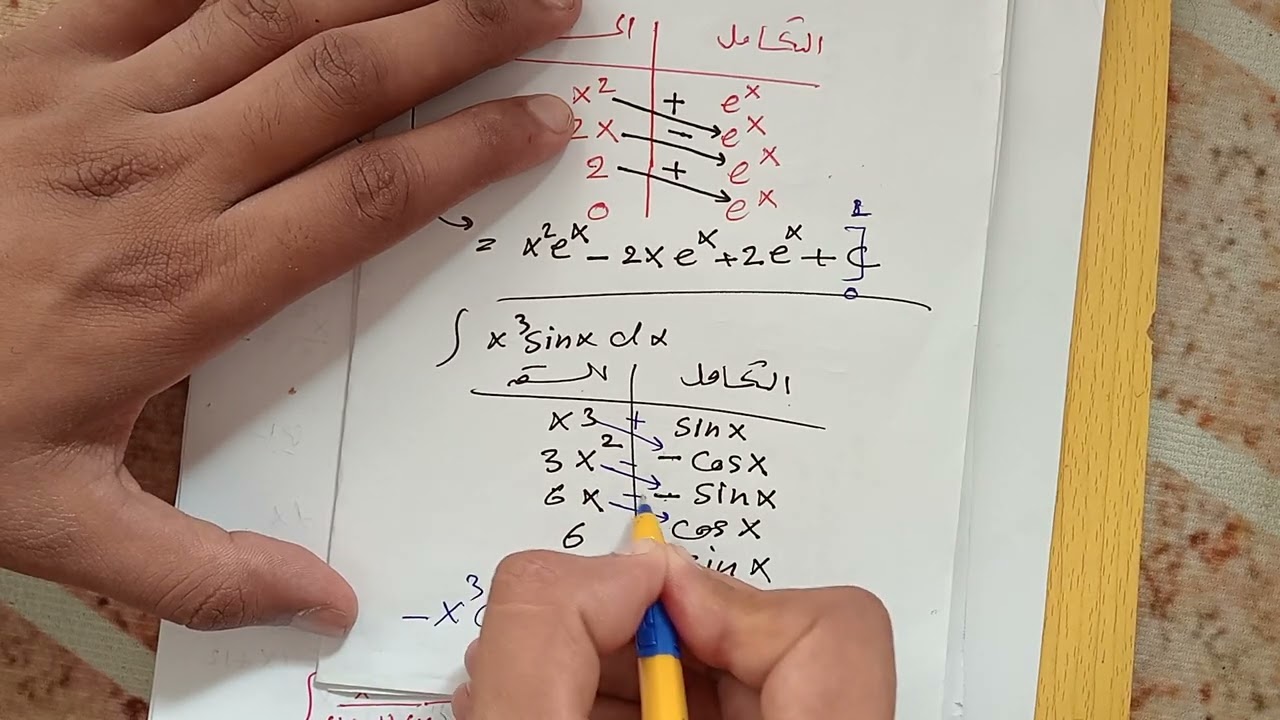 التكامل
x² + eˣ
2x - eˣ
2 + eˣ
0 eˣ
= x²eˣ - 2xeˣ + 2eˣ + C]₀¹
∫ x³ sinx dx
التكامل
x3 + sinx
3x² - - cosx
6x - sinx
6 cosx
sinx
-x³